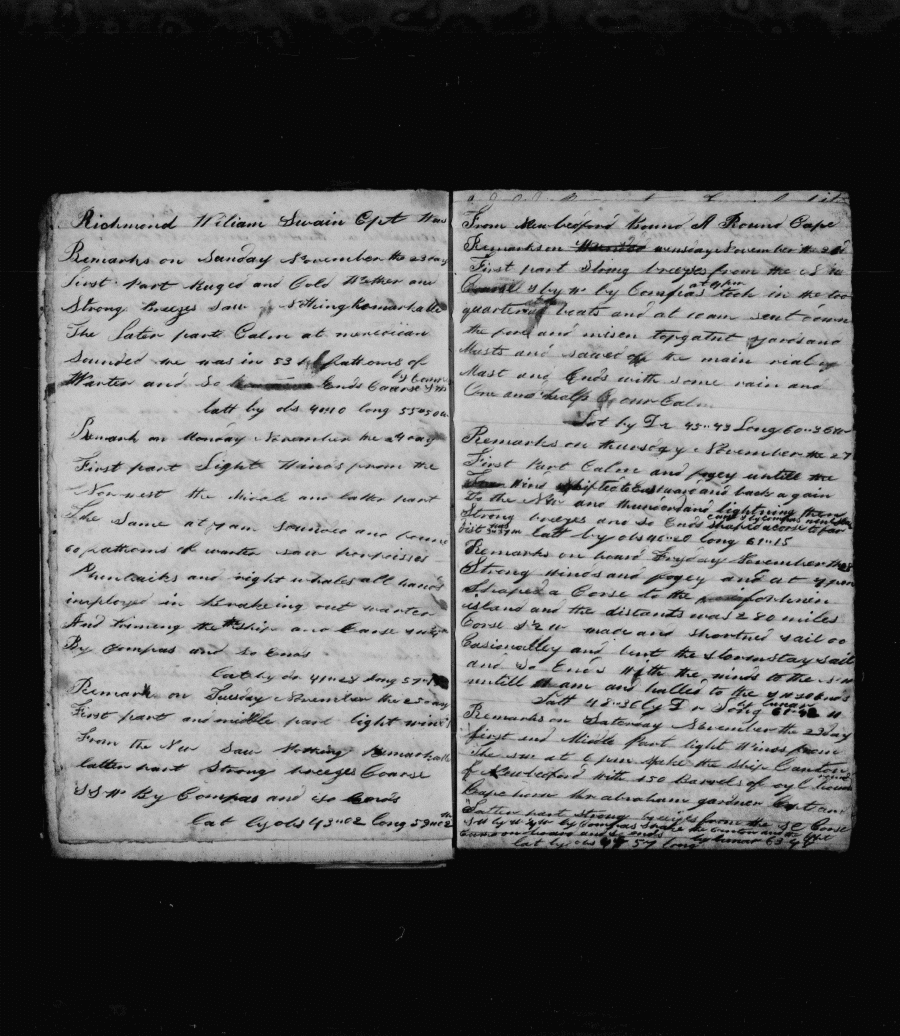 Richmond Wiliam Swain Cpt
Remarks on Sunday November the 23 day
First Part Ruged and Cold Wether and
Strong breezes saw Nothing Remarkable
The Later part Calm at meridian
Sounded we was in 53 fattoms of
Warter and So Ends Coarse
by Compas
latt by obs 41"10 long 55"50
Remark on Monday November the 24 day
First part Light Winds from the
Norwest the Midle and latter part
The Same at 7 am Sounded and found
60 fattoms of warter saw porpoisses
and right whales all hands
imployed in Brakeing out warter
And triming the Ship and Coarse
By Compas and so Ends
Lat by do 41"28 long 57"
Remark on Tuesday November the 25 day
First part and middle part light winds
From the NW Saw Nothing Remarkable
latter part Strong breezes Coarse
SSW By Compas and so Ends
Lat by obs 43"02 Long 59"02
From Newbedford Bound A Round Cape
Remarks on wensday November the 26
First part Strong breezes from the
Coarse S by W by Compas took in the too
at 4 pm
quarter boats and at 10 am sent down
the fore and misen topgalnt yards and
Masts and sawed off the main rial
Mast and Ends with some rain and
One and half knot Cur Calm
Lat by D R 45"43 Long 60"36
Remarks on thursday November the 27
First Part Calm and fogey untill the
Wind shifted to Eastward and back again
To the NW and thunder and lightning then
Strong breezes and so Ends shaped a corse to
latt by obs 46"20 long 61"15
Remarks on board Fryday November the 28
Strong Winds and fogey and at 4 pm
Shaped a Corse to the
island and the distants was 280 miles
Corse S 2 W made and shortned sail oc
Casionalley and bent the storm stay sail
and So Ends With the winds to the NW
untill am and halled to the
Latt 48"36 by D R Long 61"
by lunar
Remarks on Saturday November the 29 day
first and Middle Part light Winds from
The SW at 6 pm Spoke the Ship Canton
of Newbedford With 150 Barrels of oyl bound
round
Cape horn the abraham gardner Capt and
Latter part Strong breezes from the SE Corse
by Compas
on board and so ends by lunar 63
lat by obs 49 57 long